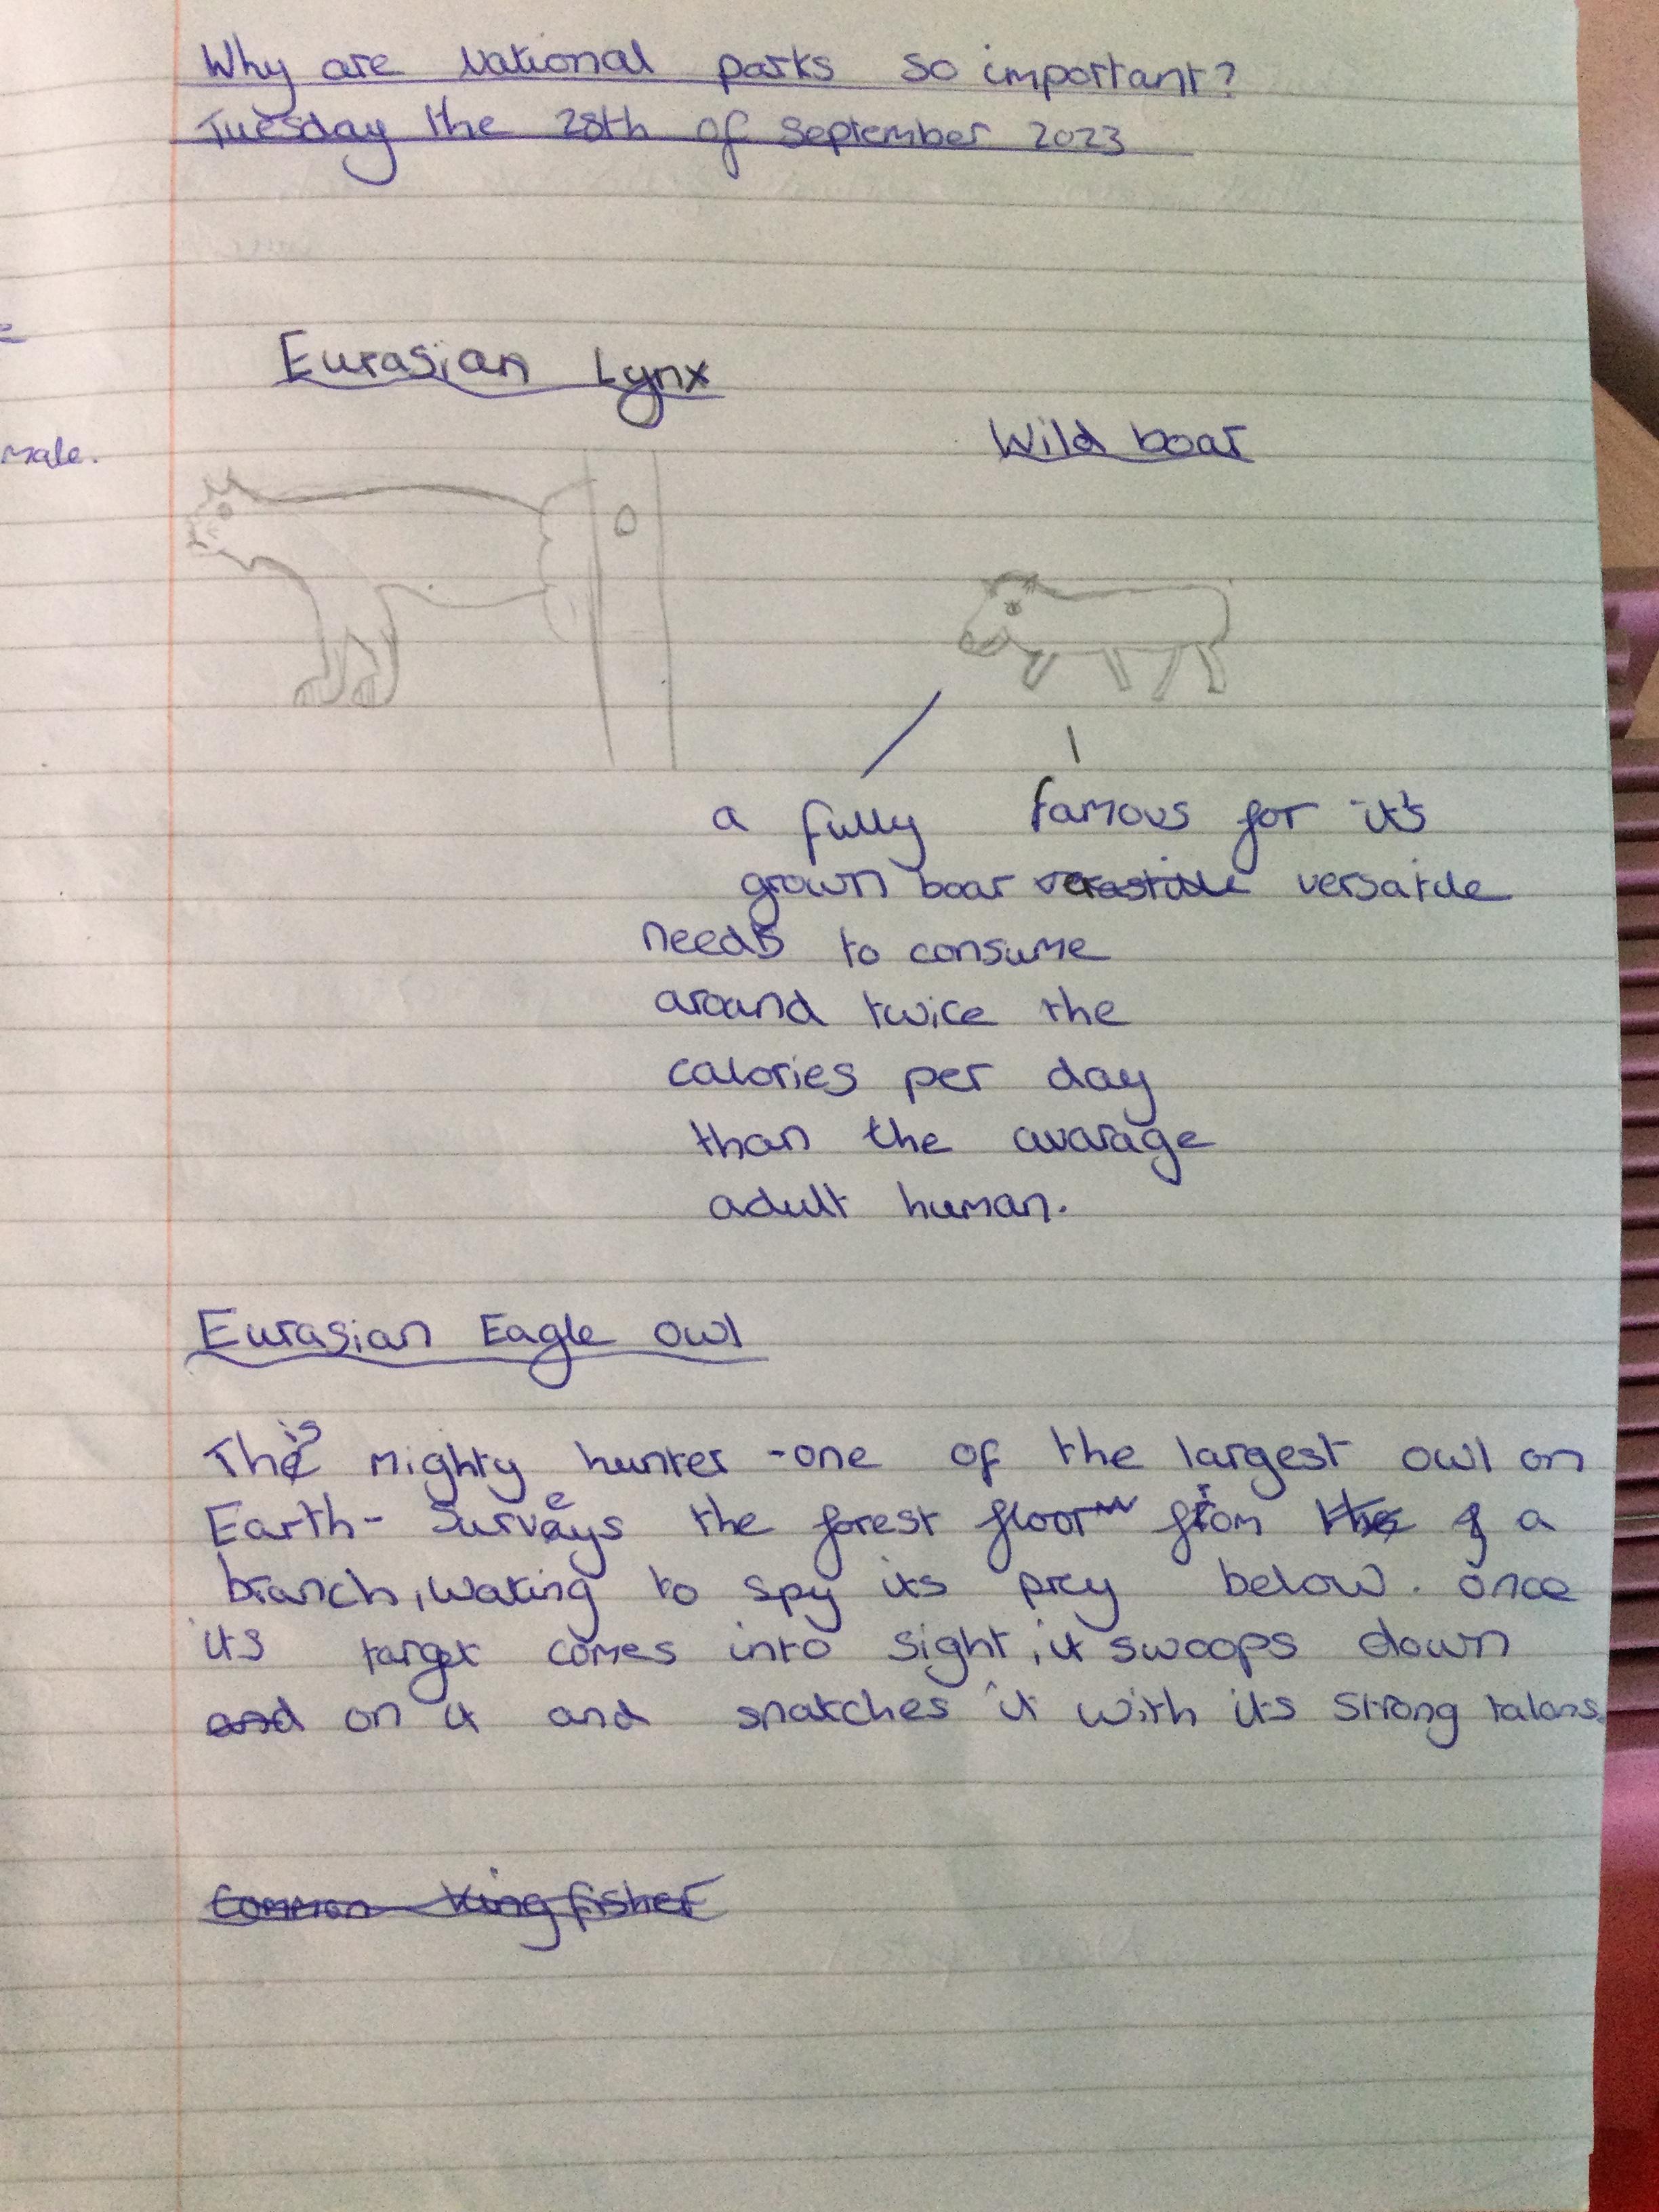 Why are National parks so important?
Tuesday the 28th of September 2023
Eurasian Lynx
Wild boar
male.
a fully
grown boar
needs to consume
around twice the
calories per day
than the avarage
adult human.
famous for it's
versatile
Eurasian Eagle owl
This mighty hunter - one of the largest owl on
Earth - surveys the forest floor from a
branch, wating to spy its prey below. once
its target comes into sight, it swoops down
and on it and snatches it with its strong talons.
Common Kingfisher